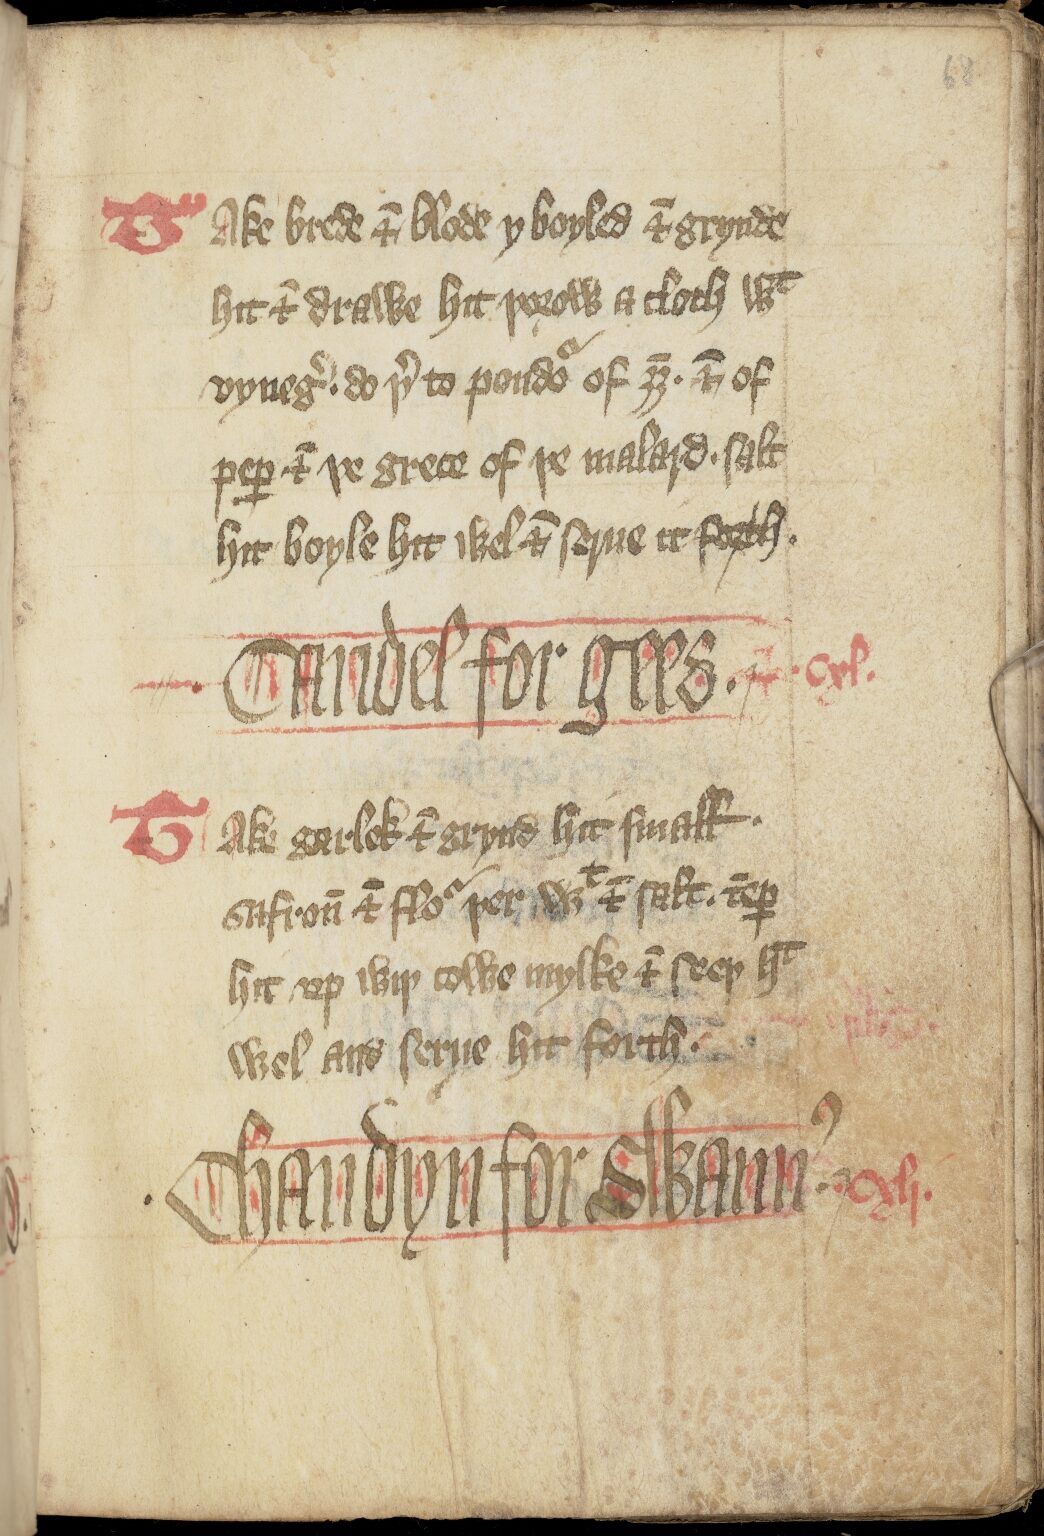 68
TAke brede ⁊ blode y boyled ⁊ grynde
hit ⁊ drawe hit þorow a cloth wt
vyneg̛. do þ̛ to poudo of gȳ. ⁊ of
peꝑ ⁊ þe grece of þe malard. salt
hit boyle hit wel ⁊ serue it forth.
Caudel for gees. Cxl.
TAke garlek ⁊ grynd hit small.
safron̄ ⁊ flo þer wt ⁊ salt. tēꝑ
hit vp wiþ cowe mylke ⁊ seeþ ht
wel and serue hit forth.
Chaudyn for Swann Cxlj.